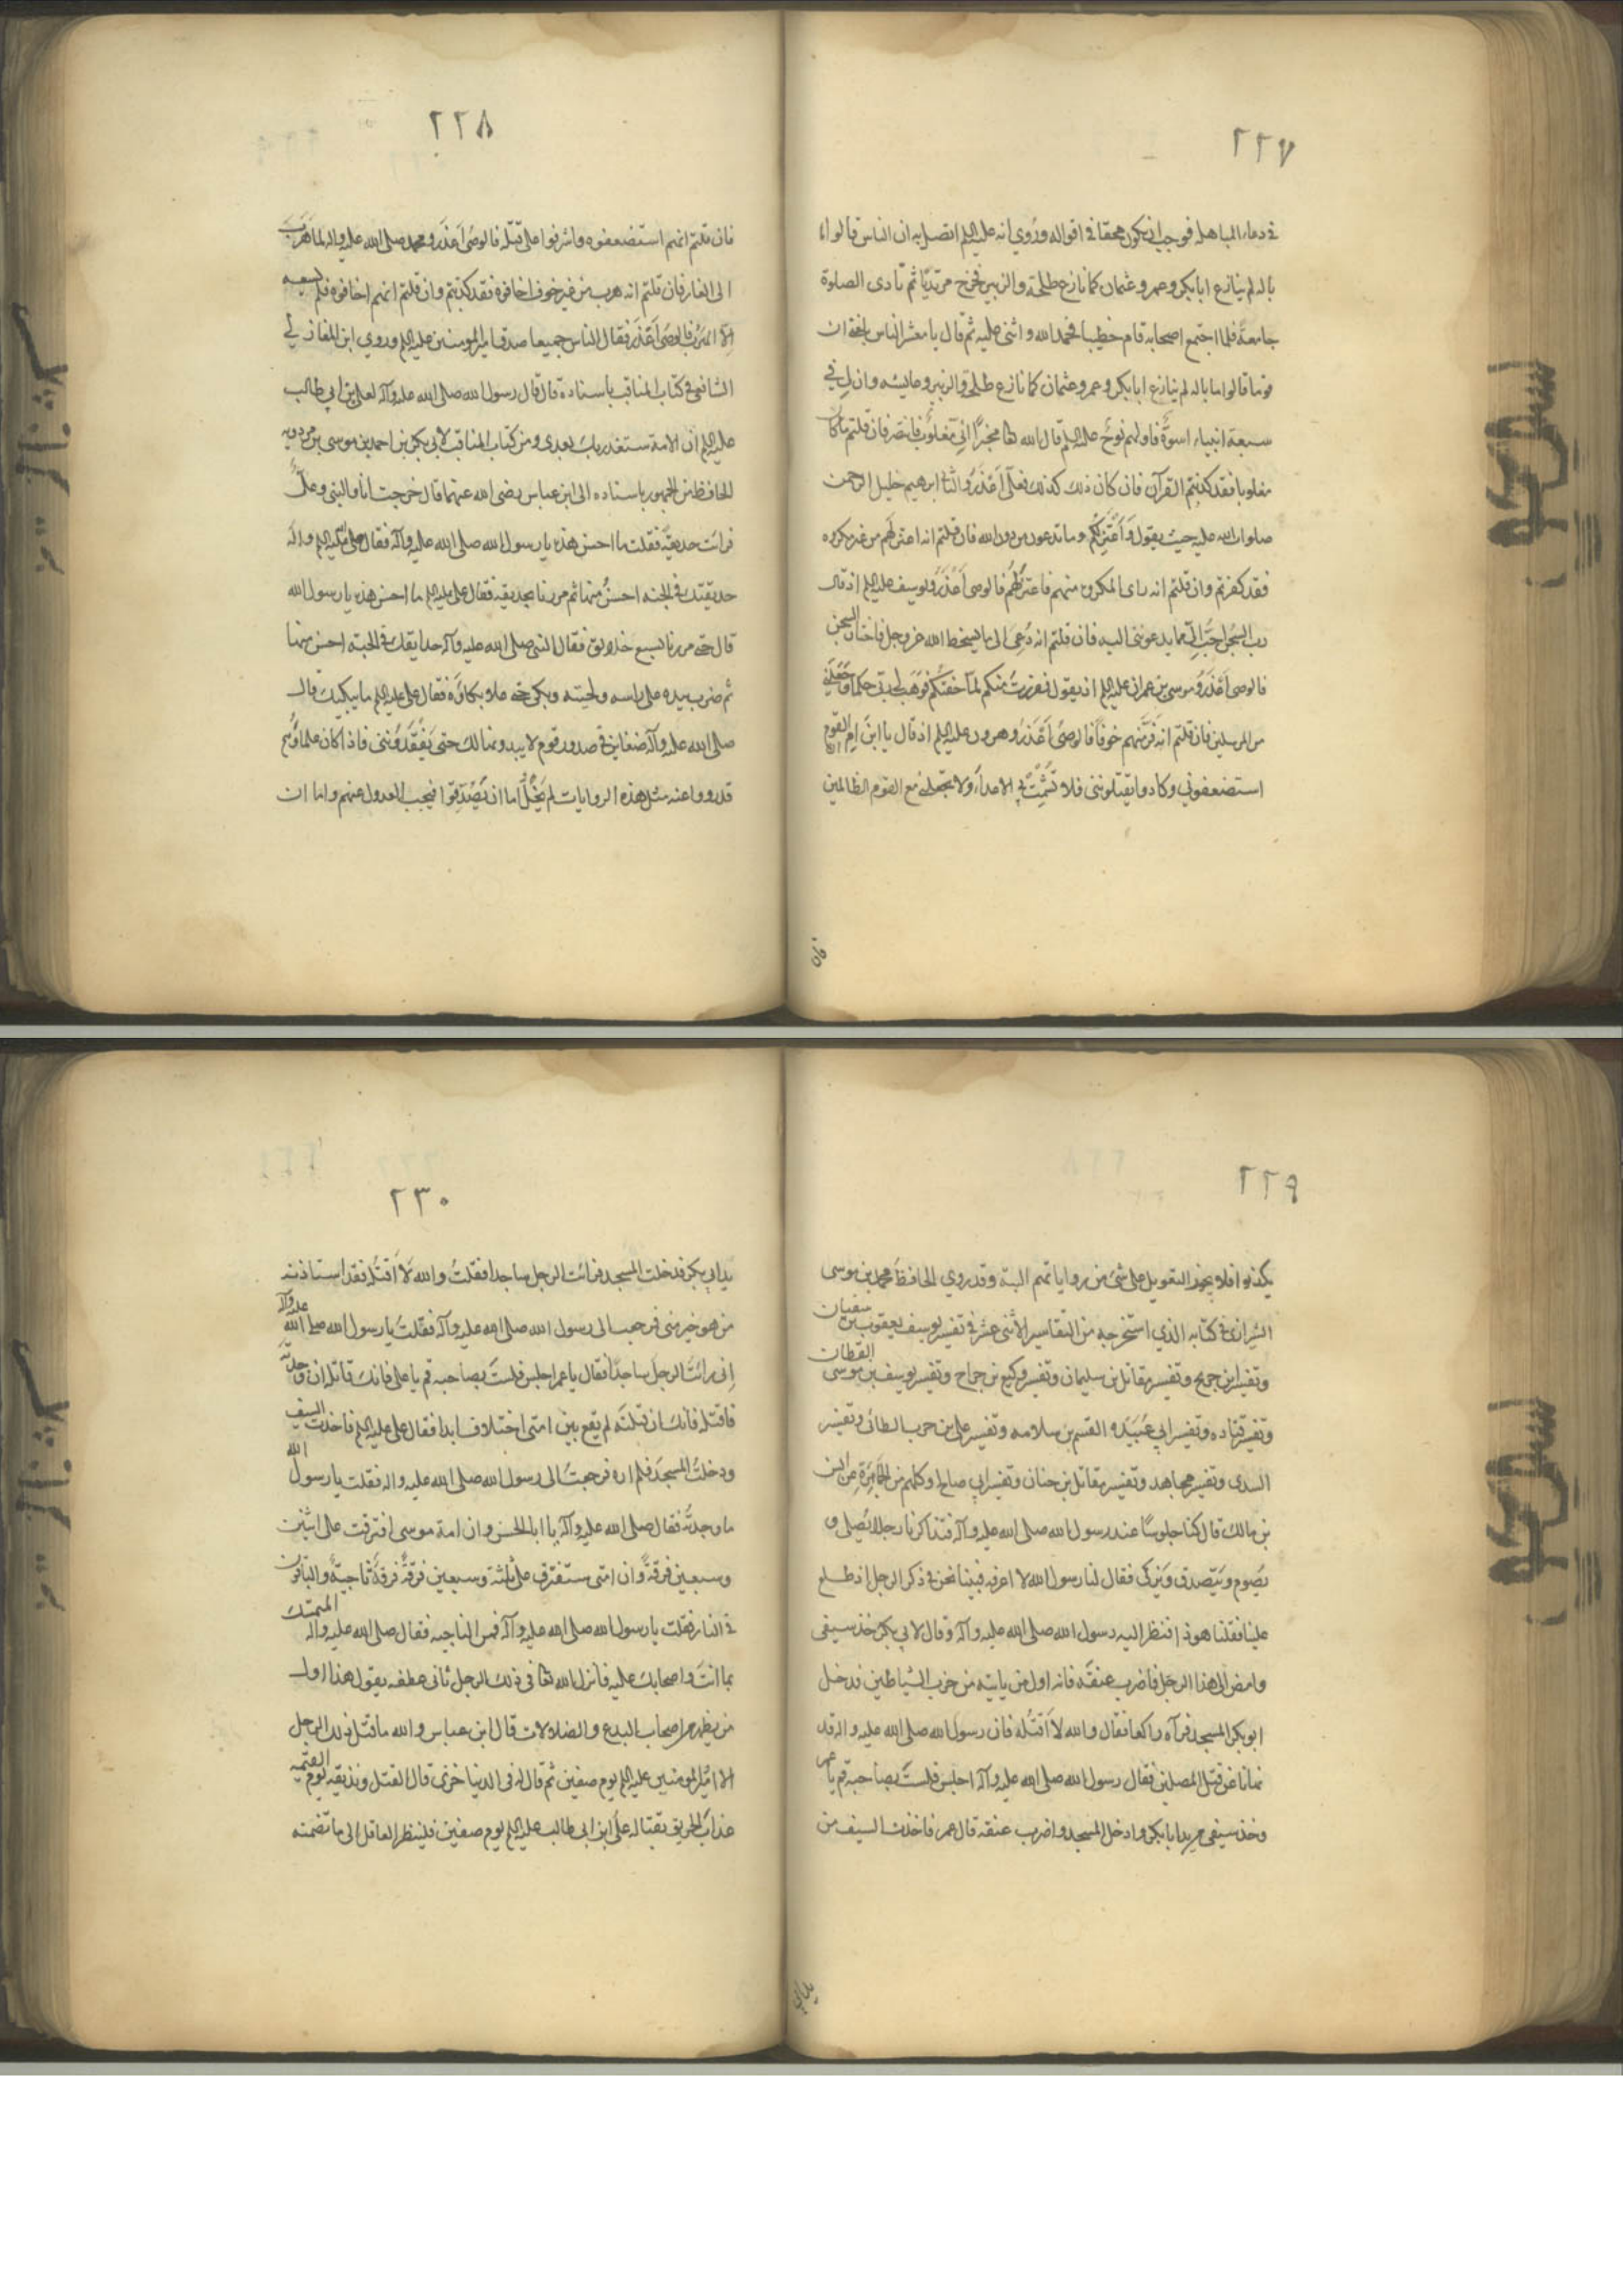 ٢٢٧
في دعاء المباهله فوجب ان يكون محقا في اقواله وروي انه عليه السلم اتصل به ان الناس قالوا ما
باله لم ينازع ابا بكر وعمر وعثمان كما نازع طلحة والزبير فخرج مرتديا ثم نادى الصلوة
جامعة فلما اجتمع اصحابه قام خطيبا فحمد الله واثنى عليه ثم قال يا معشر الناس بلغني ان
قوما قالوا ما باله لم ينازع ابا بكر وعمر وعثمان كما نازع طلحة والزبير وعايشه وان لي في
سبعة انبياء اسوة فاولهم نوح عليه السلم قال الله تعا مخبرا اني مغلوب فانتصر فان قلتم ما كان
مغلوبا فقد كذبتم القرآن فان كان ذلك كذلك فعلي اعذر والثاني ابرهيم خليل الرحمن
صلوات الله عليه حيث يقول واعتزلكم وما تدعون من دون الله فان قلتم انه اعتزلهم من غير مكروه
فقد كفرتم وان قلتم انه راى المكروه منهم فاعتزلهم فالوصي اعذر ويوسف عليه السلم اذ قال
رب السجن احب الي مما يدعونني اليه فان قلتم انه دعي الى ما يسخط الله عز وجل فاختار السجن
فالوصي اعذر وموسى بن عمران عليه السلم اذ يقول ففررت منكم لما خفتكم فوهب لي ربي حكما وجعلني
من المرسلين فان قلتم انه فر منهم خوفا فالوصي اعذر وهرون عليه السلم اذ قال يا ابن ام ان القوم
استضعفوني وكادوا يقتلونني فلا تشمت بي الاعداء ولا تجعلني مع القوم الظالمين
فان
٢٢٨
فان قلتم انهم استضعفوه واشرفوا على قتله فالوصي اعذر ومحمد صلى الله عليه واله لما هرب
الى الغار فان قلتم انه هرب من غير خوف اخافوه فقد كذبتم وان قلتم انهم اخافوه فلم يسعه
الا الهرب فالوصي اعذر فقال الناس جميعا صدق امير المؤمنين عليه السلم وروي ابن المغازلي
الشافعي في كتاب المناقب باسناده قال قال رسول الله صلى الله عليه وآله لعلي بن ابي طالب
عليه السلم ان الامة ستغدر بك بعدي ومن كتاب المناقب لابي بكر بن احمد بن موسى بن مردويه
الحافظ من الجمهور باسناده الى ابن عباس رضى الله عنهما قال خرجت انا والنبي وعلي
فرائت حديقة فقلت ما احسن هذه يا رسول الله صلى الله عليه وآله فقال صلى الله عليه السلم واله
حديقتك في الجنه احسن منها ثم مررنا بحديقه فقال علي عليه السلم ما احسن هذه يا رسول الله
قال حتى مررنا بسبع حدايق فقال النبي صلى الله عليه وآله حدايقك في الجنة احسن منها
ثم ضرب بيده على راسه ولحيته وبكى حتى علا بكاؤه فقال علي عليه السلم ما يبكيك قال
صلى الله عليه وآله ضغاين في صدور قوم لا يبدونها لك حتى يفقدونني فاذا كان علماؤهم
قد رووا عنه مثل هذه الروايات لم يخل اما ان يصدقوا فيجب العدول عنهم واما ان
٢٢٩
يكذبوا فلا يجوز التعويل على شئ من رواياتهم البتة وقد روي الحافظ محمد بن موسى
الشيرازي في كتابه الذي استخرجه من التفاسير الاثنى عشر في تفسير يوسف يعقوب بن سفيان
وتفسير ابن جريج وتفسير مقاتل بن سليمان وتفسير وكيع بن جراح وتفسير يوسف بن موسى القطان
وتفسير قتاده وتفسير ابي عبيده القسم بن سلامه وتفسير علي بن حرب الطائي وتفسير
السدى وتفسير مجاهد وتفسير مقاتل بن حنان وتفسير ابي صالح وكلهم من الجماهرة عن انس
بن مالك قال كنا جلوسا عند رسول الله صلى الله عليه وآله فتذاكرنا رجلا يصلي و
يصوم ويتصدق ويزكى فقال لنا رسول الله لا اعرفه فبينا نحن في ذكر الرجل اذ طلع
علينا فقلنا هو ذا فنظر اليه رسول الله صلى الله عليه وآله وقال لابي بكر خذ سيفي
وامض الى هذا الرجل فاضرب عنقه فانه اول من ياتيه من حزب الشياطين فدخل
ابو بكر المسجد فرآه راكعا فقال والله لا اقتله فان رسول الله صلى الله عليه واله قد
نهانا عن قتل المصلين فقال رسول الله صلى الله عليه وآله اجلس فلست بصاحبه قم يا عمر
وخذ سيفي من يد ابا بكر وادخل المسجد واضرب عنقه قال عمر فاخذت السيف من
يد ابي
٢٣٠
يد ابي بكر فدخلت المسجد فرائت الرجل ساجدا فقلت والله لا اقتله فقد استاذنه
من هو خير مني فرجعت الى رسول الله صلى الله عليه وآله فقلت يا رسول الله صلى الله عليه وآله
اني رائت الرجل ساجدا فقال يا عمر اجلس فلست بصاحبه قم يا علي فانك قاتله ان وجدته
فاقتله فانك ان قتلته لم يقع بين امتى اختلاف ابدا فقال علي عليه السلم فاخذت السيف
ودخلت المسجد فلم اره فرجعت الى رسول الله صلى الله عليه واله فقلت يا رسول الله
ما وجدته فقال صلى الله عليه وآله يا ابا الحسن وان امة موسى افترقت على اثنين
وسبعين فرقة وان امتى ستفترق على ثلثة وسبعين فرقة فرقة ناجية والباقون
في النار فقلت يا رسول الله صلى الله عليه وآله فمن الناجيه فقال صلى الله عليه واله المتمسك
بما انت واصحابك عليه فانزل الله تعا في ذلك الرجل ثاني عطفه يقول هذا اول
من يظهر من اصحاب البدع والضلالات قال ابن عباس والله ما قتل ذلك الرجل
الا امير المؤمنين عليه السلم يوم صفين ثم قال له في الدنيا خزى قال القتل ونذيقه يوم القيمه
عذاب الحريق بقتاله علي ابن ابي طالب عليه السلم يوم صفين فلينظر العاقل الى ما تضمنه